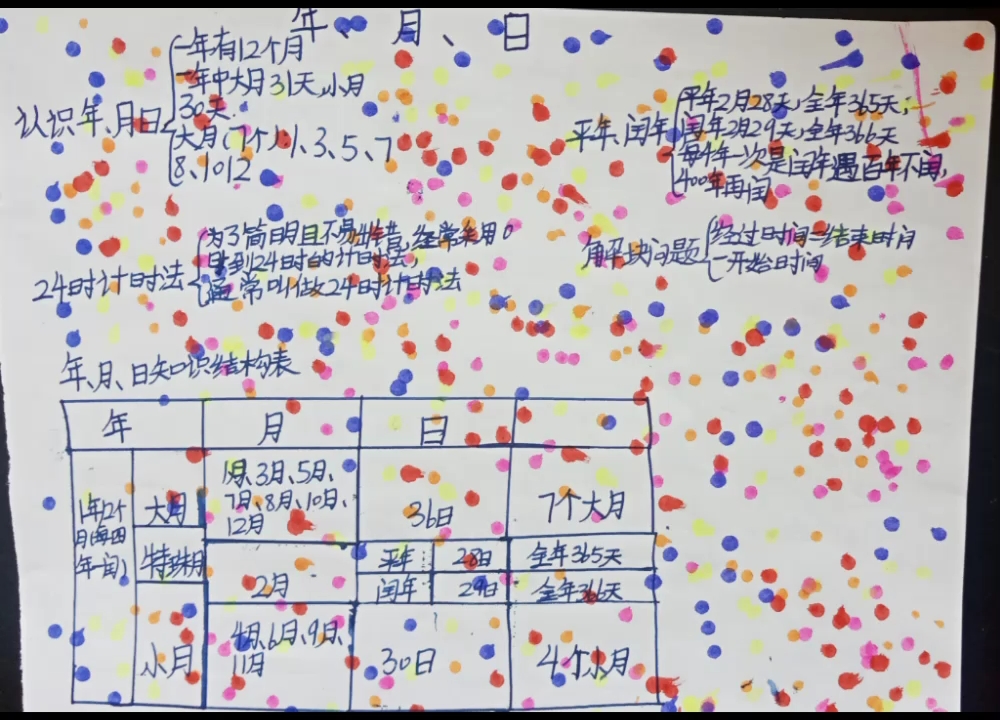 年、月、日
认识年、月日
一年有12个月
一年中大月31天,小月
30天.
大月(7个):1、3、5、7
8、1012
平年、闰年
平年2月28天,全年365天;
闰年2月29天,全年366天
每4年一次是闰年遇百年不闰,
400年再闰
24时计时法
为了简明且不易出错,经常采用0
时到24时的计时法,
通常叫做24时计时法
解决问题
经过时间=结束时间
-开始时间
年、月、日知识结构表
年 月 日
1年12个
月(每四
年一闰)
大月
1月、3月、5月、
7月、8月、10月、
12月
36日
7个大月
特殊月
2月
平年 28日 全年365天
闰年 29日 全年366天
小月
4月、6月、9月、
11月
30日
4个小月